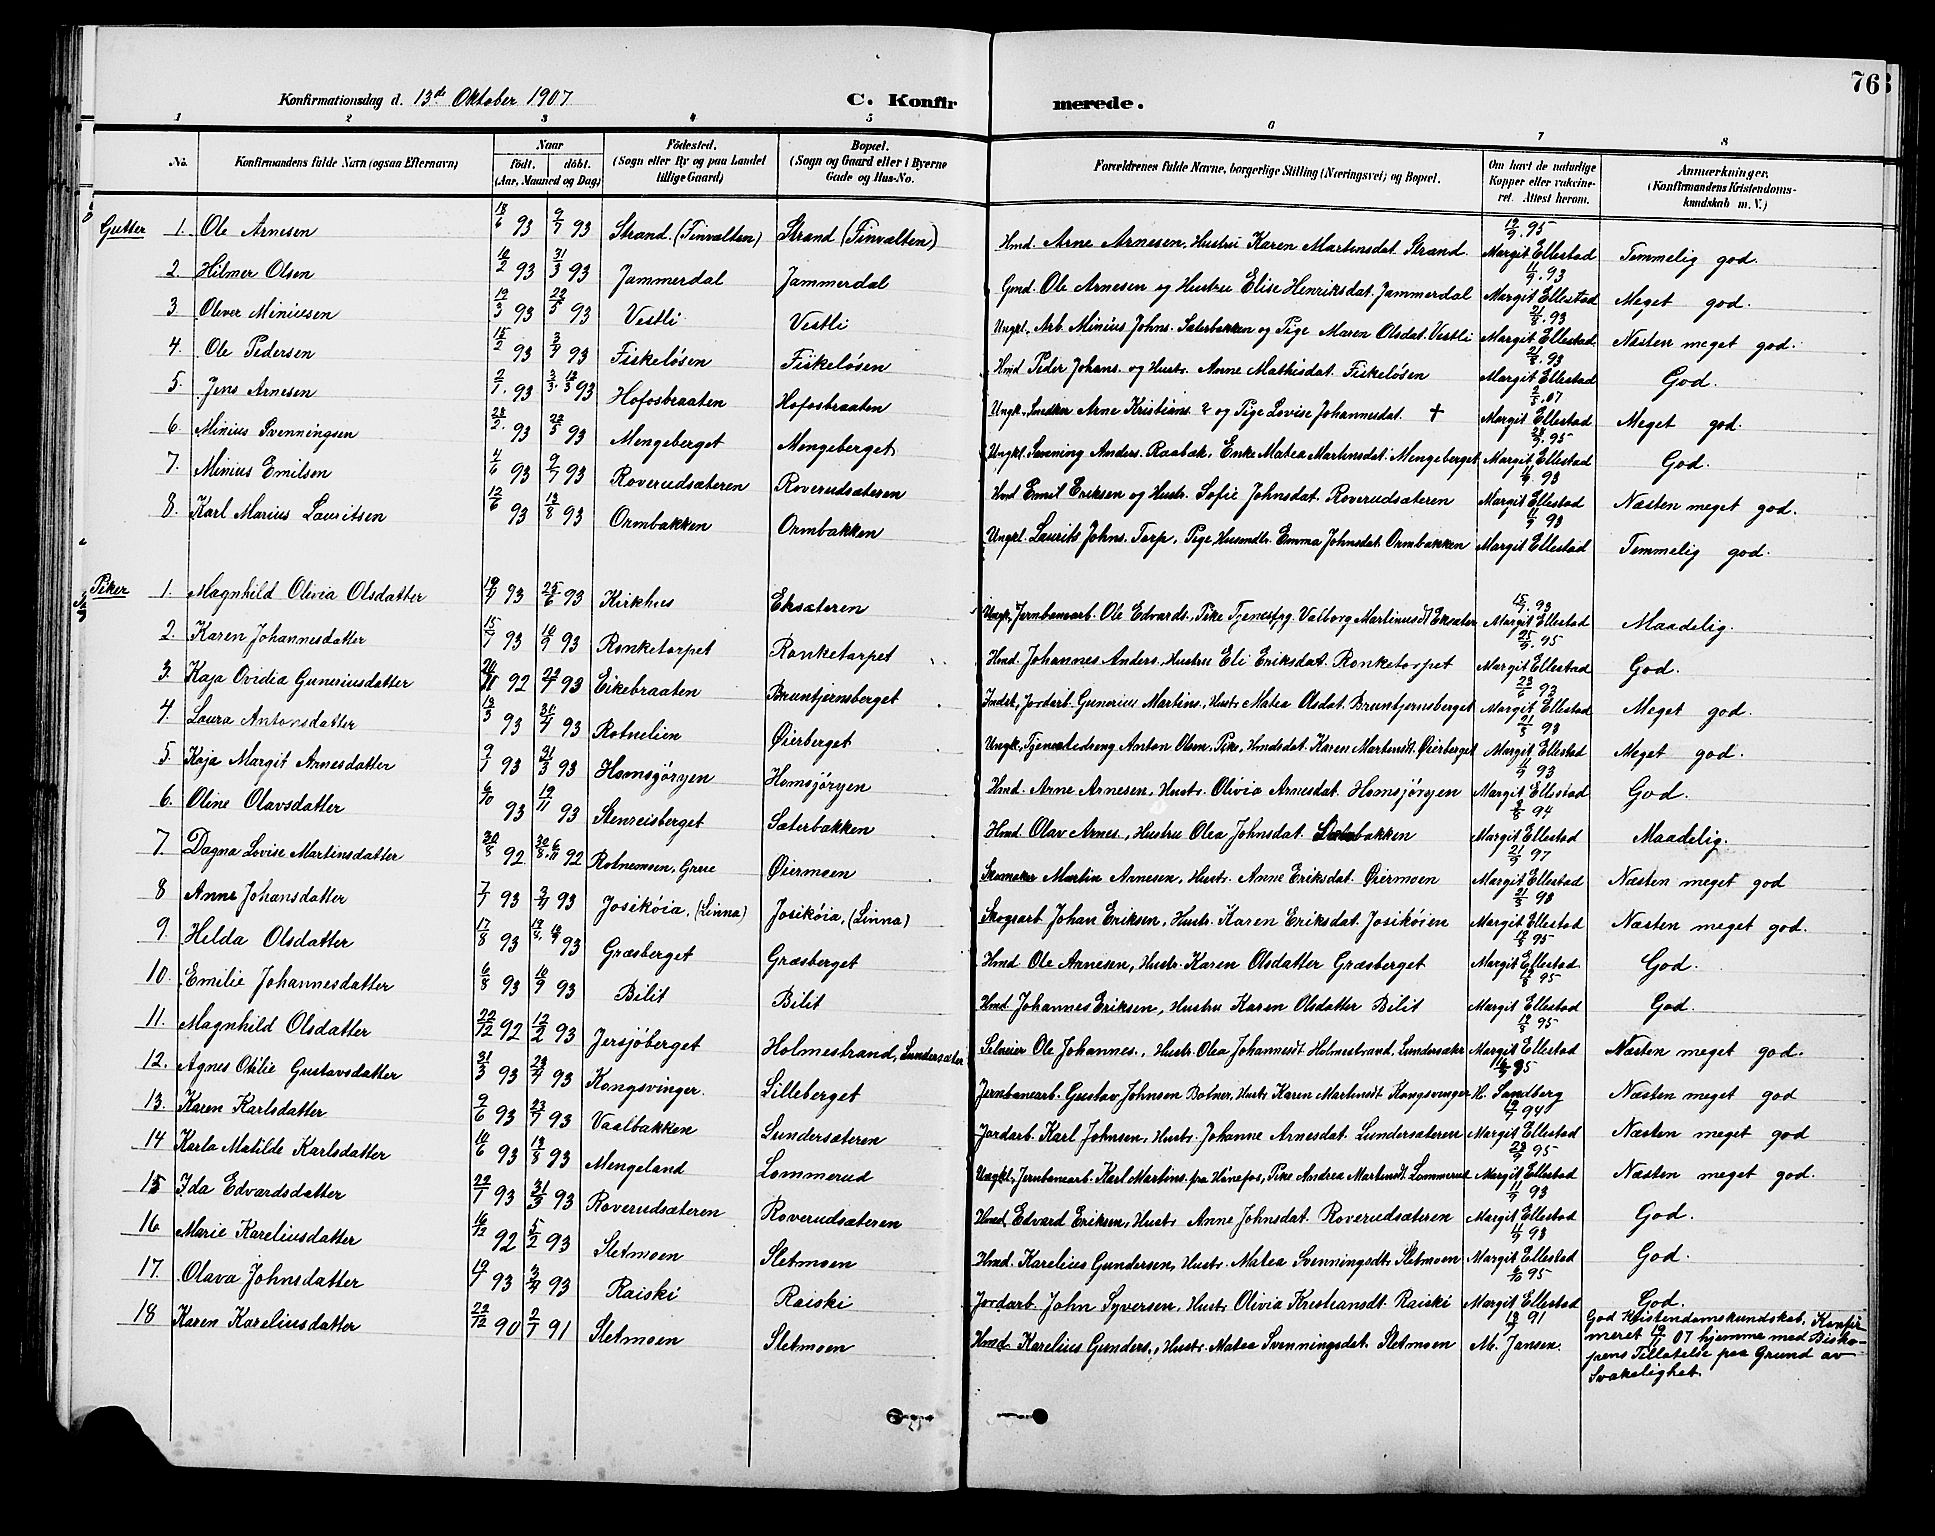 763
Konfirmationsdag d. 13de Oktober 1907 C. Konfirmerede.
1 2 3 4 5 6 7 8
No. Konfirmandens fulde Navn (ogsaa Efternavn) Naar født. døbt. (Aar, Maaned og Dag) Fødested. (Sogn eller By og paa Landet tillige Gaard) Bopæl. (Sogn og Gaard eller i Byerne Gade og Hus-No. Forældrenes fulde Navne, borgerlige Stilling (Næringsvei) og Bopæl. Om havt de naturlige Kopper eller vakcineret. Attest herom. Anmærkninger. (Konfirmandens Kristendomskundskab m. V.)
Gutter 1. Ole Arnesen 18/6 93 9/7 93 Strand (Finvalten) Strand (Finvalten) Hmd. Arne Arnesen, Hustru Karen Martinsdat. Strand. 12/9 95 Margit Ellestad Temmelig god.
2. Hilmer Olsen 10/2 93 31/3 93 Jammerdal Jammerdal Gmd. Ole Arnesen og Hustru Elise Henriksdat. Jammerdal 11/9 93 Margit Ellestad Meget god.
3 Oliver Miniussen 19/3 93 22/5 93 Vestli Vestli Ungkl. Arb. Minius Johns. Sæterbakken og Pige Maren Olsdat. Vestli 21/8 93 Margit Ellestad Næsten meget god.
4. Ole Pedersen 15/2 93 3/4 93 Fiskeløsen Fiskeløsen Hmd Peder Johans. og Hustr. Anne Mathisdat. Fiskeløsen 21/8 93 Margit Ellestad God.
5. Jens Arnesen 2/1 93 3/3 12/3 93 Hofosbraaten Hofosbraaten Ungk. Smdken Arne Kristians. og Pige Lovise Johannesdat. + 2/5 07 Margit Ellestad Meget god.
6 Minius Svenningsen 28/2 93 22/5 93 Mengeberget Mengeberget Ungkl. Svening Anders. Raabæk, Enke Matea Martinsdat. Mengeberget 28/9 95 Margit Ellestad God.
7. Minius Emilsen 4/6 93 9/7 93 Roverudsæteren Roverudsæteren Hmd Emil Eriksen og Hustr. Sofie Johnsdat. Roverudsæteren 11/9 93 Margit Ellestad Næsten meget god.
8. Karl Marius Lauritsen 12/6 93 13/8 93 Ormbakken Ormbakken Ungkl. Laurits Johns. Torp, Pige Husmdtr. Emma Johnsdat. Ormbakken 11/9 93 Margit Ellestad Temmelig god.
Piker 1. Magnhild Olivia Olsdatter 19/4 93 25/6 93 Kirkhus Eksæteren Ungk. Jernbanearb. Ole Edvards., Pike Tjenestpg. Valborg Martinusdt Eksæter 15/9 93 Margit Ellestad Maadelig.
2. Karen Johannesdatter 15/7 93 10/9 93 Ronketorpet Ronketorpet Hmd. Johannes Anders., Hustru Eli Eriksdat. Ronketorpet 25/9 95 Margit Ellestad God.
3. Kaja Ovidia Guneriusdatter 24/11 92 22/1 93 Eikebraaten Bruntjernsberget Indst., Jordarb. Gunerius Martins., Hustr. Matea Olsdat. Bruntjernsberget 23/6 93 Margit Ellestad Meget god.
4. Laura Antonsdatter 13/3 93 31/4 93 Rotnelien Øierberget Ungk., Tjenestedreng Anton Olsn., Pike, Hmdsdat. Karen Martinsdt. Øierberget 21/8 93 Margit Ellestad Meget god.
5. Kaja Margit Arnesdatter 9/1 93 31/3 93 Homsjøryen Homsjøryen Hmd. Arne Arnesen, Hustr. Olivia Arnesdat. Homsjøryen 11/9 93 Margit Ellestad God.
6. Oline Olavsdatter 6/10 93 19/11 93 Stenreisberget Sæterbakken Hmd. Olav Arnes., Hustru Olea Johnsdat. Sæterbakken 8/8 94 Margit Ellestad Maadelig.
7. Dagna Lovise Martinsdatter 30/8 92 30/8 6/11 92 Rotnemoen, Grue Øiermoen Skomaker Martin Arnesen, Hustr. Anne Eriksdat. Øiermoen 21/9 97 Margit Ellestad Næsten meget god
8 Anna Johansdatter 7/1 93 3/4 93 Josikøia, (Linna) Josikøia, (Linna) Skogsarb. Johan Eriksen, Hustr. Karen Eriksdat. Josikøien 21/8 93 Margit Ellestad Næsten meget god.
9. Hilda Olsdatter 17/8 93 19/8 10/9 93 Græsberget Græsberget Hmd Ole Arnesen, Hustr. Karen Olsdatter Græsberget 12/8 95 Margit Ellestad God.
10. Emilie Johannesdatter 6/8 93 10/9 93 Bilit Bilit Hmd. Johannes Eriksen, Hustru Karen Olsdatter Bilit 12/8 95 Margit Ellestad God.
11. Magnhild Olsdatter 22/12 92 12/2 93 Jersjøberget Holmestrand, Lundersæter Selveier Ole Johannes., Hustr. Olea Johannesdt. Holmestrand, Lundersæter 12/8 95 Margit Ellestad Næsten meget god.
12. Agnes Otilie Gustavsdatter 31/3 93 23/4 93 Kongsvinger. Lilleberget Jernbanearb. Gustav Johnsen Botner, Hustr. Karen Martinsdt Kongsvinger 16/9 95 H. Sundberg Næsten meget god
13. Karen Karlsdatter 9/6 93 23/7 93 Vaalbakken Lundersæteren Jordarb. Karl Johnsen, Hustr. Johanne Arnesdat. Lundersæteren 12/7 94 Margit Ellestad Næsten meget god
14 Karla Matilde Karlsdatter 10/6 93 13/8 93 Mengeland Lommerud Ungkl., Jernbanearb. Karl Martins. paa Hønefos, Pike Andrea Martinsdt. Lommerud 23/9 95 Margit Ellestad Næsten meget god.
15 Ida Edvardsdatter 22/1 93 31/3 93 Roverudsæteren Roverudsæteren Hmd, Edvard Eriksen, Hustr. Anne Johnsdat. Roverudsæteren 11/9 93 Margit Ellestad God.
16 Marie Kareliusdatter 16/12 92 5/2 93 Sletmoen Sletmoen Hmd. Karelius Gundersen, Hustr. Matea Svenningsdt. Sletmoen 11/9 93 Margit Ellestad God.
17. Olava Johnsdatter 19/1 93 3/4 93 Raiski Raiski Jordarb. John Syversen, Hustr. Olivia Kristiansdt. Raiski 6/10 95 Margit Ellestad God.
18 Karen Kareliusdatter 22/12 90 2/7 91 Sletmoen Sletmoen Hmd. Karelius Gunders., Hustr. Matea Svenningsdat. Sletmoen 91 M. Jansen. God Kristendomskundskab. Konfirmeret 19/1 07 hjemme med Biskopens Tilladelse paa Grund av Svakelighet.